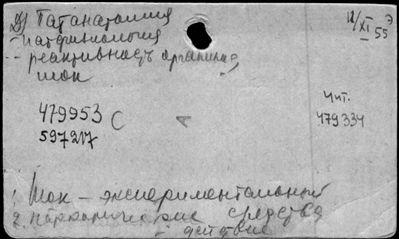 Патанатомия
патфизиология
- реактивность организма,
шок
12/XI 55 Э
479953 С
597217
Чит.
479334
1. Шок – экспериментальный
2. наркотические средства
– действие